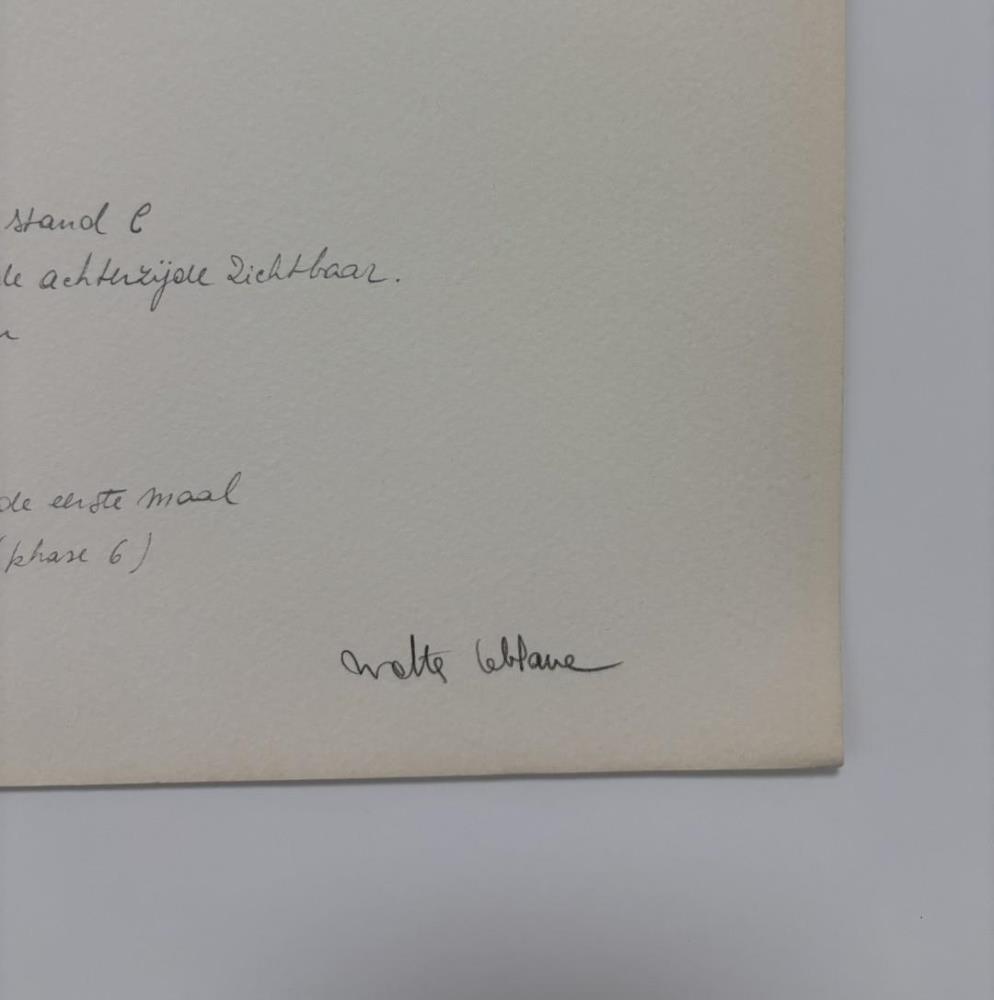 stand C
de achterzijde zichtbaar.
de eerste maal
(phase 6)
walter leblanc